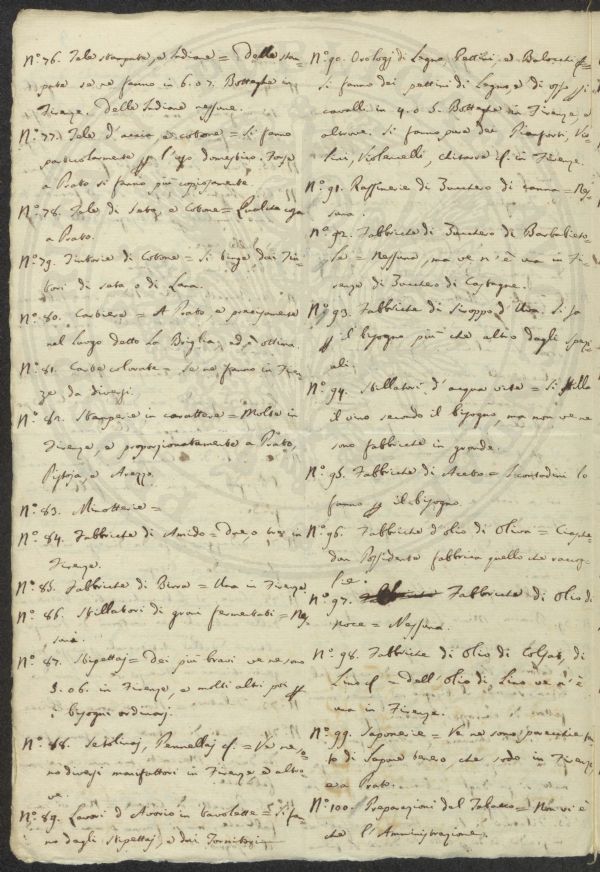 N.º 76. Tele stampate, e Indiane = Delle stam-
pate se ne fanno in 6. o 7. Botteghe in
Firenze. Delle Indiane nessune.
N.º 77. Tele d'accia, e cotone = Si fanno
particolarmente per l'uso domestico. Forse
a Prato si fanno più copiosamente.
N.º 78. Tele di Seta, e Cotone = Qualche cosa
a Prato.
N.º 79. Tintorie di Cotone = Si tinge dai Tin-
tori di seta, o di Lana.
N.º 80. Cartiere = A Prato, e precisamente
nel luogo detto La Briglia, ed è ottima.
N.º 81. Carte colorate = se ne fanno in Firen-
ze da diversi.
N.º 82. Stamperie in carattere = Molte in
Firenze, e proporzionatamente a Prato,
Pistoja, e Arezzo.
N.º 83. Minotterie =
N.º 84. Fabbriche di Amido = due, o tre in
Firenze.
N.º 85. Fabbriche di Birra = Una in Firenze
N.º 86. Stillatori di grani fermentati = Nes-
suna.
N.º 87. Stipettaj = Dei più bravi ve ne sono
5. o 6. in Firenze, e molti altri per
i bisogni ordinarj.
N.º 88. Setolinaj, Pennellaj &. = Ve ne so-
no diversi manifattori in Firenze e altro-
ve.
N.º 89. Lavori d'Avorio in tavolette = Si fan-
no dagli Stipettaj, e dai Tornitori
N.º 90. Orologj di Legno, Pettini, e Balocchi &. =
Si fanno dei pettini di Legno, e di osso per i
cavalli in 4. o 5. Botteghe in Firenze, e
altrove. Si fanno pure dei Pianforti, Vio-
lini, Violoncelli, chitarre &. in Firenze.
N.º 91. Raffinerie di Zucchero di canna = Nes-
suna.
N.º 92. Fabbriche di Zucchero di Barbabieto-
la = Nessuna, ma ve n'è una in Fi-
renze di Zucchero di Castagne.
N.º 93. Fabbriche di Siroppo d'Uva. Si fa
per il bisogno più che altro dagli spezi-
ali.
N.º 94. Stillatori d'acqua vite = Si stilla
il vino secondo il bisogno, ma non ve ne
sono fabbriche in grande.
N.º 95. Fabbriche di Aceto = I contadini lo
fanno per il bisogno
N.º 96. Fabbriche d'olio di oliva = Ciasche-
dun Possidente fabbrica quello che raccog-
lie.
N.º 97. Fabbriche di Olio di
noce = Nessuna.
N.º 98. Fabbriche di Olio di Colsat, di
Lino &. = dell'Olio di Lino ve n'è
una in Firenze.
N.º 99. Saponerie = Ve ne sono parecchie
di Sapone tenero, che sodo in Firenze
e a Prato.
N.º 100. Preparazioni del Tabacco = Non vi è
che l'Amministrazione.